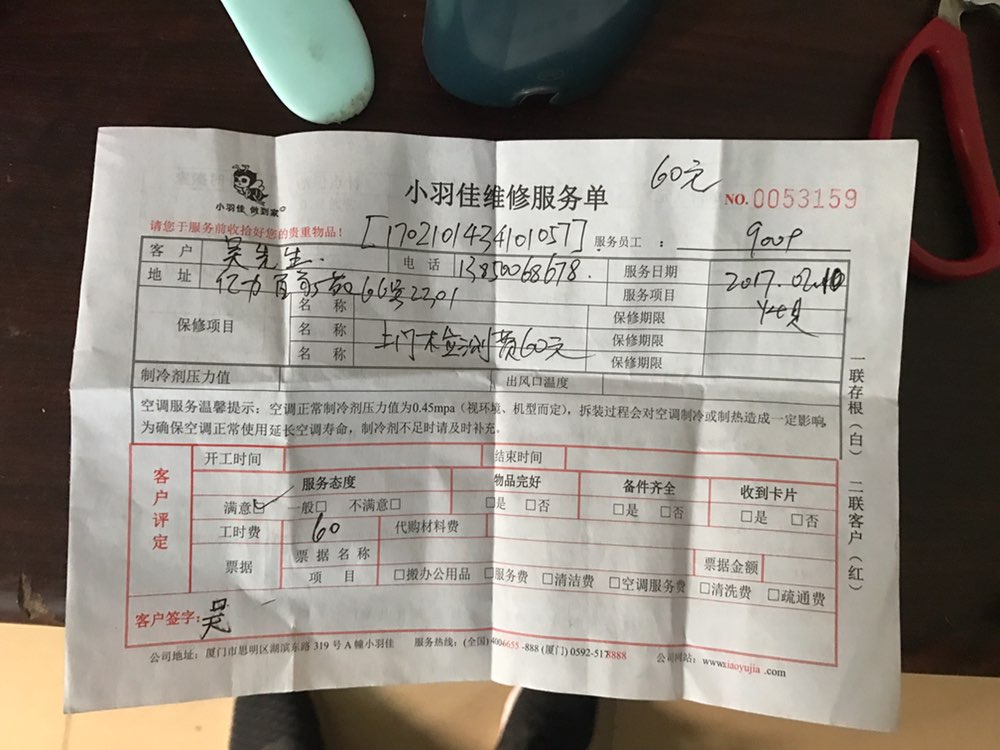 60元
小羽佳维修服务单
NO.0053159
小羽佳 做到家
请您于服务前收拾好您的贵重物品！
[170210143410​1057] 服务员工：
客户 吴先生. 电话 13850068678. 服务日期 2017.02.10
地址 66号2201 服务项目
保修项目 名称 保修期限
名称 保修期限
名称 上门检测费60元 保修期限
制冷剂压力值 出风口温度
空调服务温馨提示：空调正常制冷剂压力值为0.45mpa（视环境、机型而定），拆装过程会对空调制冷或制热造成一定影响，
为确保空调正常使用延长空调寿命，制冷剂不足时请及时补充。
客户评定
开工时间 结束时间
服务态度 物品完好 备件齐全 收到卡片
满意☑ 一般□ 不满意□ □是 □否 □是 □否 □是 □否
工时费 60 代购材料费
票据 票据名称 票据金额
项目 □搬办公用品 □服务费 □清洁费 □空调服务费 □清洗费 □疏通费
客户签字：吴
公司地址：厦门市思明区湖滨东路 319 号 A 幢小羽佳 服务热线：(全国) 4006655-888 (厦门) 0592-5178888 公司网站：www.xiaoyujia.com
一联存根（白） 二联客户（红）